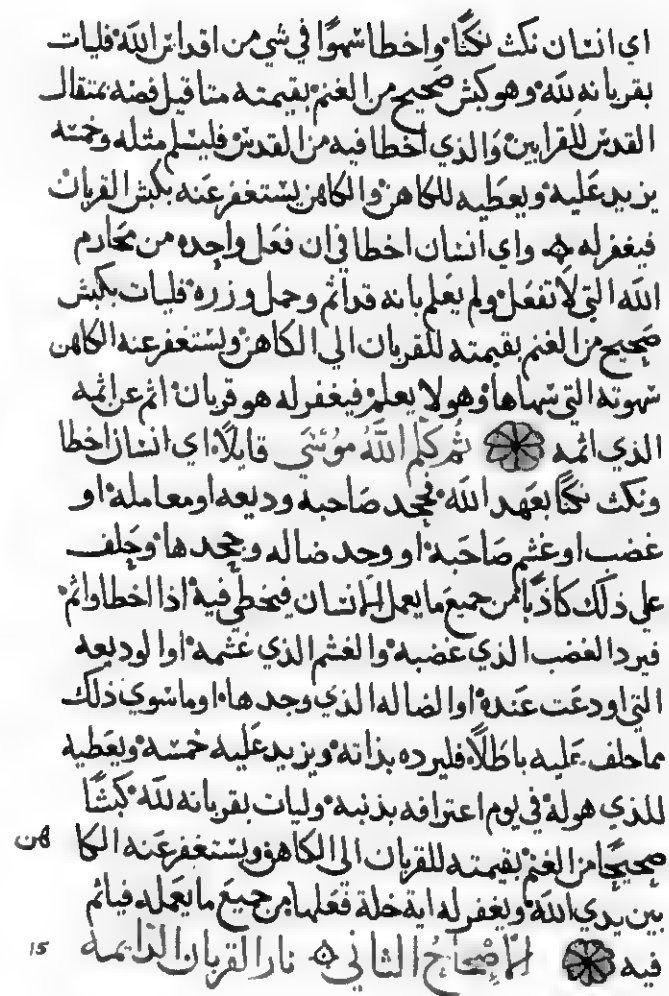 اي انسان نكث نكثًا واخطا سهوًا في شي من اقداس الله فليات
بقربانه لله وهو كبش صحيح من الغنم بقيمته مثاقيل فضه بمثقال
القدس للقرابين والذي اخطا فيه من القدس فليسلم مثله وخمسه
يزيد عليه ويعطيه للكاهن والكاهن يستغفر عنه بكبش القربان
فيغفر له واي انسان اخطا في ان فعل واحده من محارم
الله التي لا تفعل ولم يعلم بانه قد اثم وحمل وزره فليات بكبش
صحيح من الغنم بقيمته للقربان الي الكاهن ويستغفر عنه الكاهن
سهوته التي سهاها وهو لا يعلم فيغفر له هو قربان اثم عن اثمه
الذي اثمه ثم كلم الله موسي قايلًا اي انسان اخطا
ونكث نكثًا بعهد الله فجحد صاحبه وديعه او معامله او
غصب او غشم صاحبه او وجد ضاله وجحدها وحلف
علي ذلك كاذبًا من جميع ما يعمل الانسان فيخطي فيه اذا اخطا واثم
فيرد الغصب الذي غصبه والغشم الذي غشمه او الوديعه
التي اودعت عنده او الضاله الذي وجدها او ما سوي ذلك
مما حلف عليه باطلًا فليرده بذاته ويزيد عليه خمسه ويعطيه
للذي هو له في يوم اعترافه بذنبه وليات بقربانه لله كبشًا
صحيحًا من الغنم بقيمته للقربان الي الكاهن ويستغفر عنه الكا هن
بين يدي الله ويغفر له اية خلة فعلها من جميع ما يعمله فياثم
فيه الاصحاح الثاني نار القربان الدايمه 15